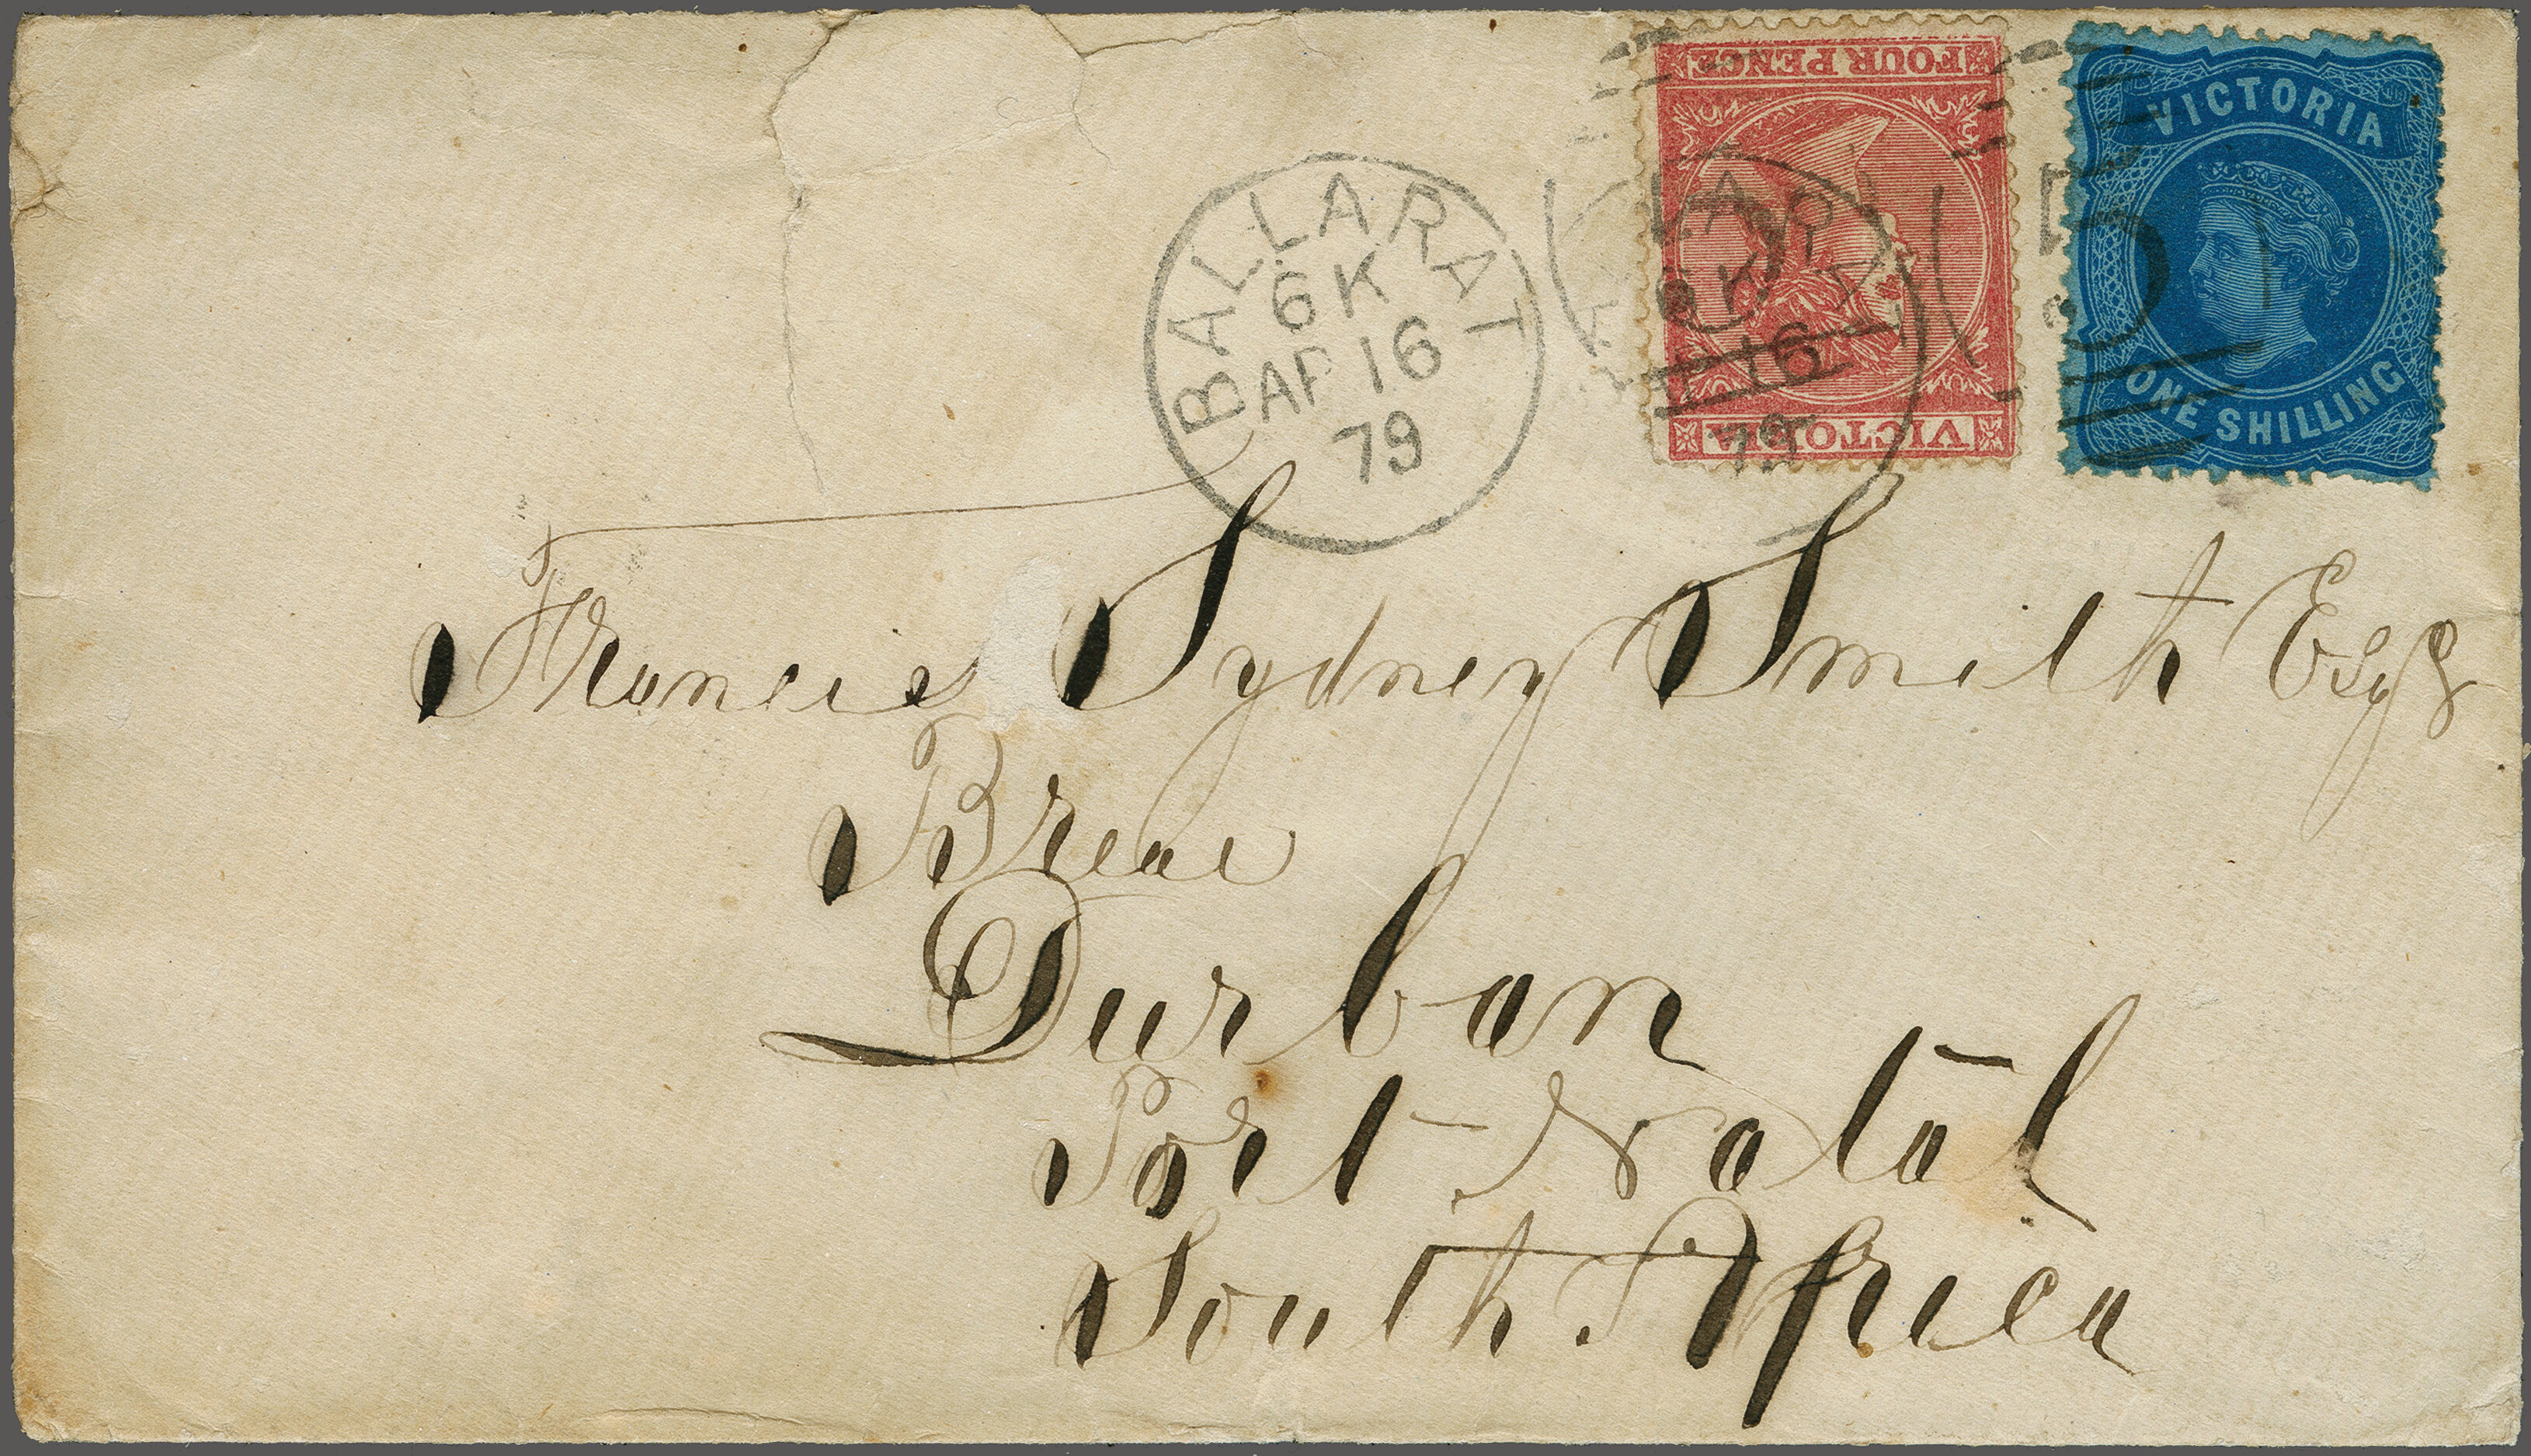 FOUR PENCE
VICTORIA
VICTORIA
ONE SHILLING
BALLARAT
6K
AP 16
79
6K
16
79
Francis Sydney Smith Esqr
Durban
Port Natal
South Africa